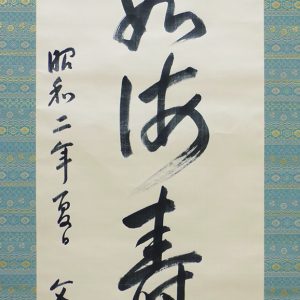 如海寿
昭和二年夏日